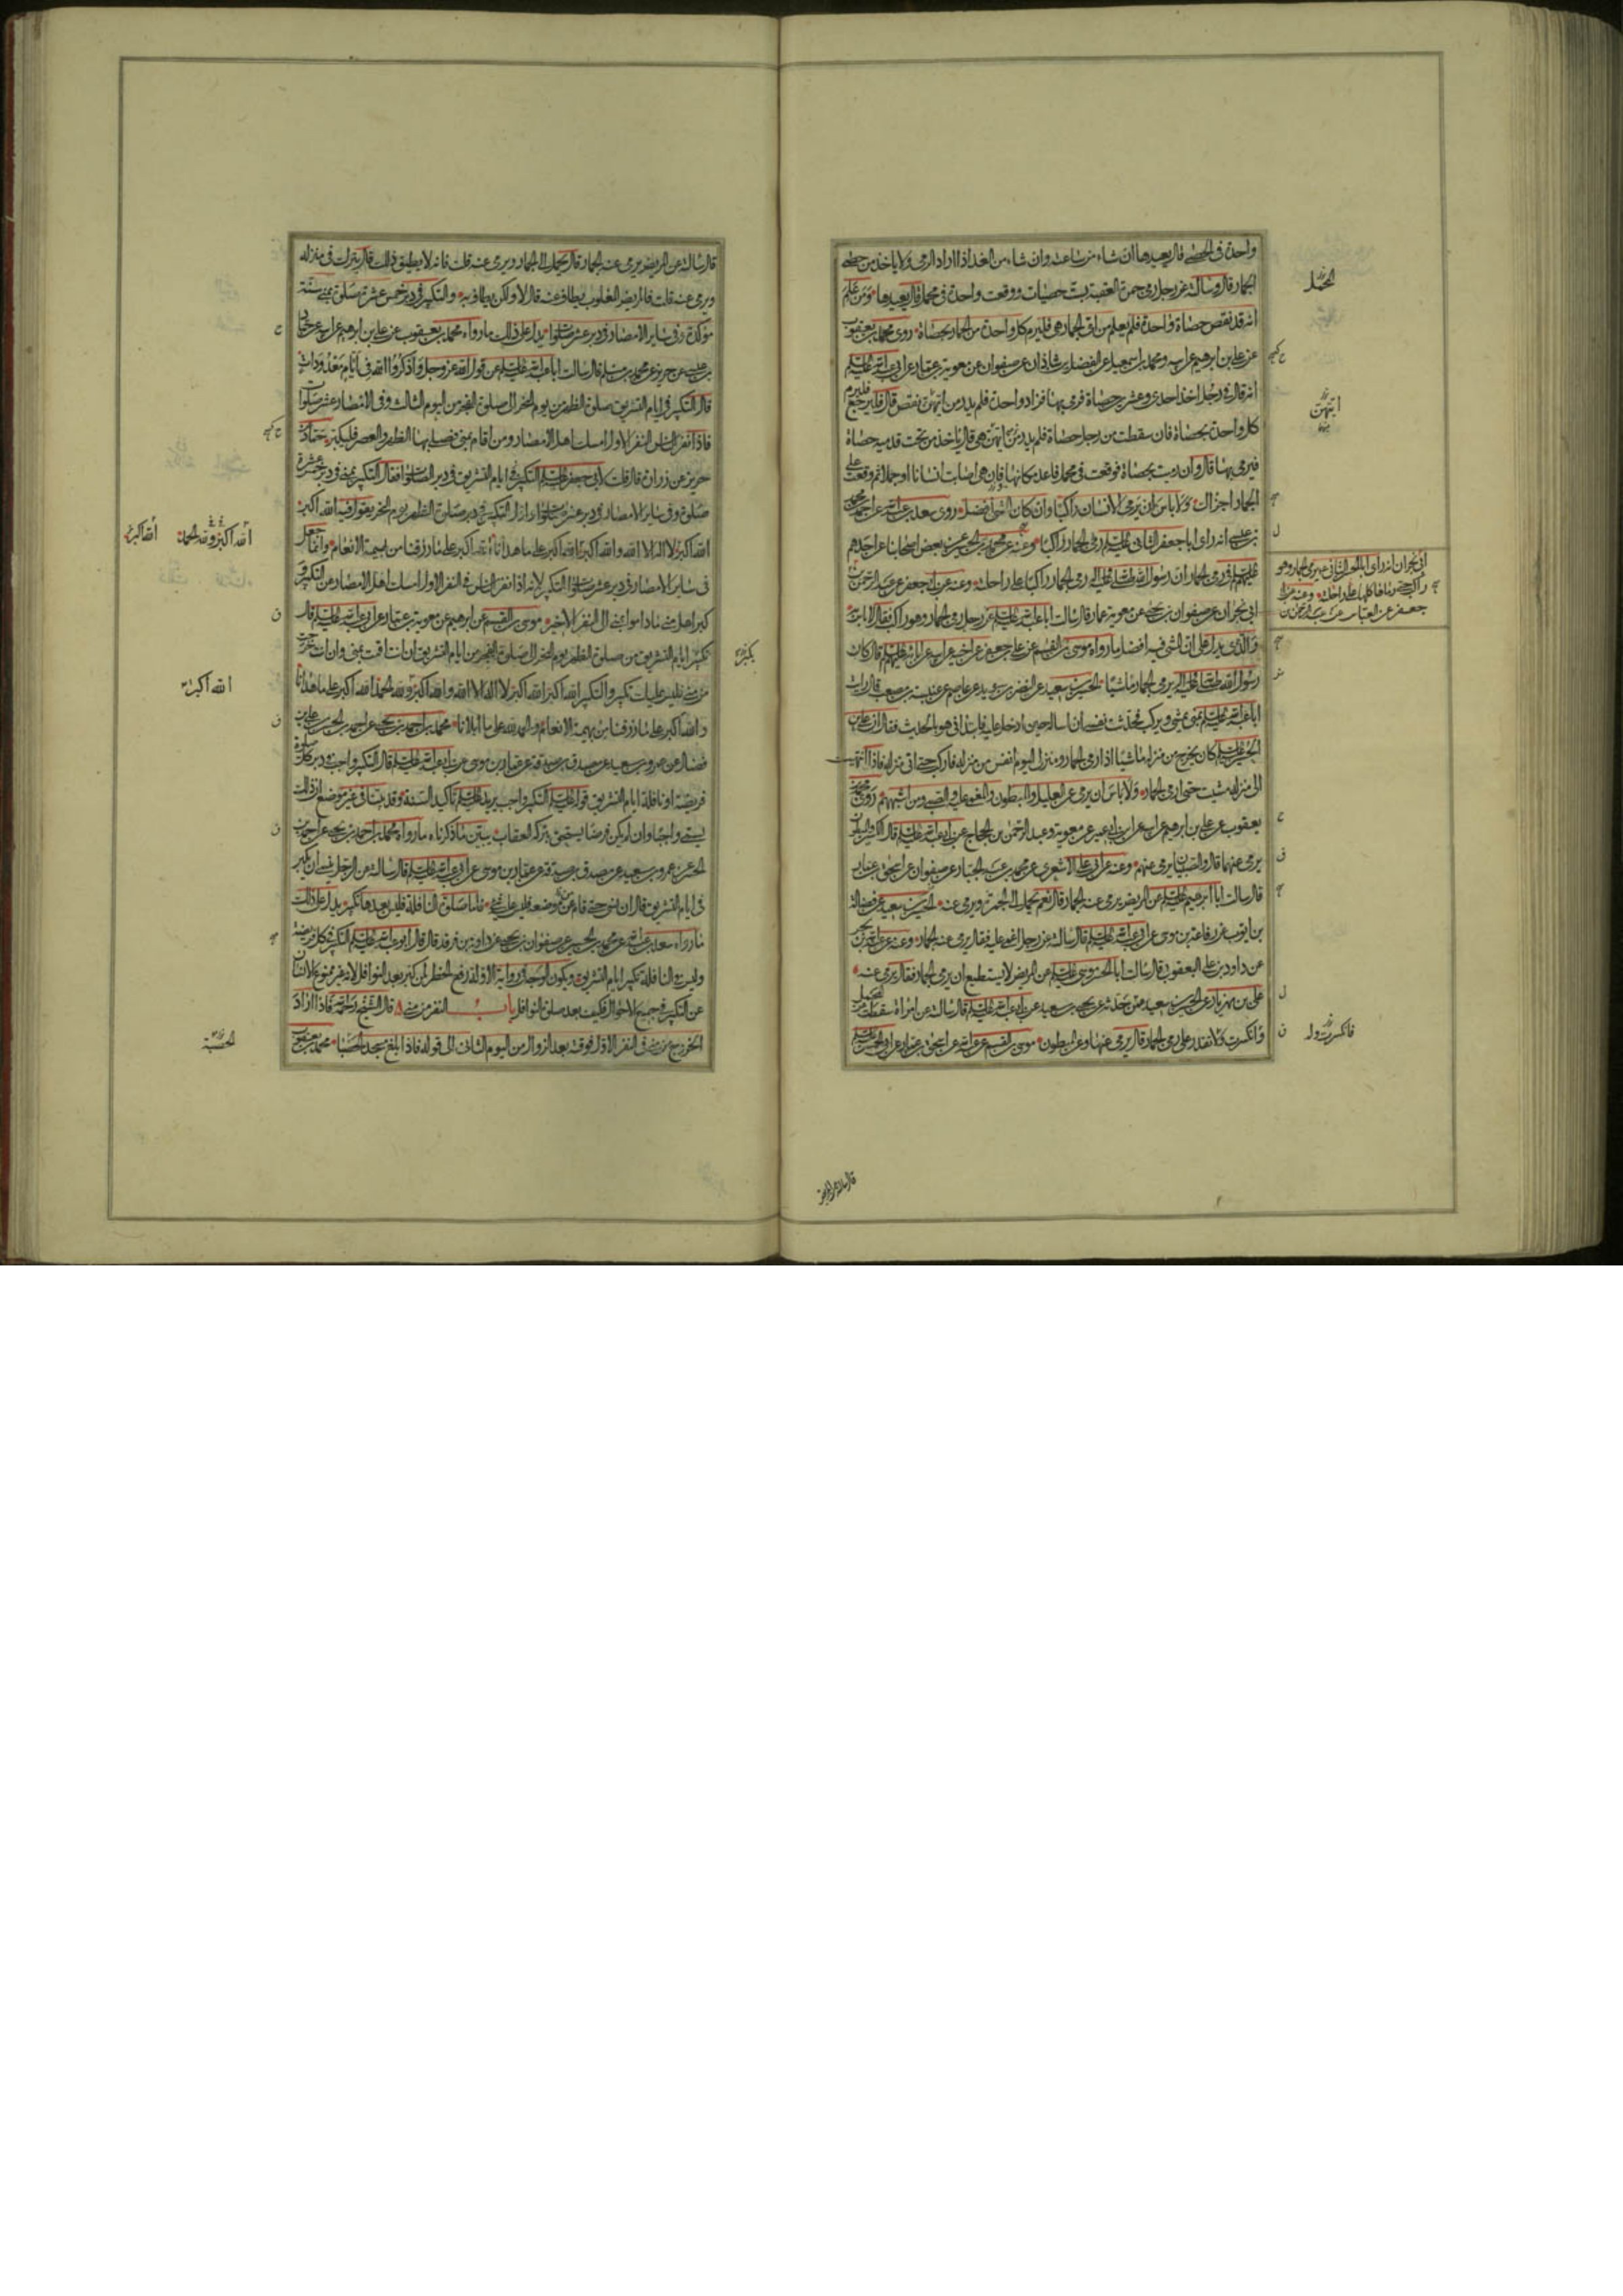 واحدة في الحصى قال يعيدها ان شاء من ساعته وان شاء من الغد اذا اراد الرمى ولا ياخذ من حصى
الجمار قال وسالته عن رجل رمى جمرة العقبة بست حصيات ووقعت واحدة في محمل قال يعيدها ومن علم
انه قد نقص حصاة واحدة فلم يعلم من اى الجمار هى فليرم كل واحدة من الجمار بحصاة روى محمد بن يعقوب
عن على بن ابرهيم عن ابيه ومحمد بن اسمعيل عن الفضل بن شاذان عن صفوان عن معوية بن عمار عن ابى عبد الله عليه السلم
انه قال في رجل اخذ احدى وعشرين حصاة فرمى بها فزاد واحدة فلم يدر من ايتهن نقص قال فليرجع فليرم
كل واحدة بحصاة فان سقطت من رجل حصاة فلم يدر من ايتهن هى قال ياخذ من تحت قدميه حصاة
فيرمى بها قال وان رميت بحصاة فوقعت في محمل فاعد مكانها فان هى اصابت انسانا او جملا ثم وقعت على
الجمار اجزاك ولا باس ان يرمى الانسان راكبا وان كان المشى افضل روى سعد بن عبد الله عن احمد بن محمد
بن عيسى انه راى ابا جعفر الثانى عليه السلم رمى الجمار راكبا وعنه عن محمد بن الحسين عن بعض اصحابنا عن احدهم
عليهم السلم في رمى الجمار ان رسول الله صلى الله عليه واله رمى الجمار راكبا على راحلته وعنه عن ابى جعفر عن عبد الرحمن بن
ابى نجران عن صفوان بن يحيى عن معوية بن عمار قال سالت ابا عبد الله عليه السلم عن رجل رمى الجمار وهو راكب فقال لا باس به
والذى يدل على ان المشى فيه افضل ما رواه موسى بن القسم عن على بن جعفر عن اخيه عن ابيه عن ابائه عليهم السلم قال كان
رسول الله صلى الله عليه واله يرمى الجمار ماشيا الحسين بن سعيد عن النضر بن سويد عن عاصم عن عنبسة بن مصعب قال رايت
ابا عبد الله عليه السلم بمنى يمشى ويركب فحدثت نفسى ان اساله حين ادخل عليه فابتدانى هو بالحديث فقال ان على بن
الحسين عليه السلم كان يخرج من منزله ماشيا اذا رمى الجمار ومنزلى اليوم انفس من منزله فاركب حتى اتى منزله فاذا انتهيت
الى منزله مشيت حتى ارمى الجمار ولا باس ان يرمى عن العليل والمبطون والمغمى عليه والصبى ومن اشبههم روى محمد بن
يعقوب عن على بن ابرهيم عن ابيه عن ابن ابى عمير عن معوية وعبد الرحمن بن الحجاج عن ابى عبد الله عليه السلم قال الكسير والمبطون
يرمى عنهما قال والصبيان يرمى عنهم وعنه عن ابى على الاشعرى عن محمد بن عبد الجبار عن صفوان عن اسحق بن عمار
قال سالت ابا ابرهيم عليه السلم عن المريض يرمى عنه الجمار قال نعم يحمل الى الجمرة ويرمى عنه الحسين بن سعيد عن فضالة
بن ايوب عن رفاعة بن موسى عن ابى عبد الله عليه السلم قال سالته عن رجل اغمى عليه فقال يرمى عنه الجمار
عن داود بن على اليعقوبى قال سالت ابا الحسن موسى عليه السلم عن المريض لا يستطيع ان يرمى الجمار فقال يرمى عنه
على بن مهزيار عن الحسين بن سعيد عمن حدثه عن يحيى بن سعيد عن ابى عبد الله عليه السلم قال سالته عن امراة سقطت من المحمل
وانكسرت ولا تقدر على رمى الجمار قال يرمى عنها وعن المبطون موسى بن القسم عن عبد الله عن اسحق بن عمار عن ابى الحسن عليه السلم
المحمل
ايتهن
ابى نجران انه راى ابا الحسن الثانى عليه السلم يرمى الجمار وهو
راكب حتى رماها كلها على راحلته وعنه عن ابى
جعفر عن العباس عن عبد الرحمن بن
فانكسرت ولم
قال سالته عن المريض
قال سالته عن المريض يرمى عنه الجمار قال يحمل الى الجمار ويرمى عنه قلت فانه لا يطيق ذلك قال يترك في منزله
ويرمى عنه قلت فالمريض المغلوب يطاف عنه قال لا ولكن يطاف به والتكبير في دبر خمس عشرة صلوة بمنى سنة
مؤكدة وفي ساير الامصار في دبر عشر صلوات يدل على ذلك ما رواه محمد بن يعقوب عن على بن ابرهيم عن ابيه عن حماد
بن عيسى عن حريز عن محمد بن مسلم قال سالت ابا عبد الله عليه السلم عن قول الله عز وجل واذكروا الله في ايام معدودات
قال التكبير في ايام التشريق صلوة الظهر من يوم النحر الى صلوة الفجر من اليوم الثالث وفي الامصار عشر صلوات
فاذا نفر الناس النفر الاول امسك اهل الامصار ومن اقام بمنى فصلى بها الظهر والعصر فليكبر حماد عن
حريز عن زرارة قال قلت لابى جعفر عليه السلم التكبير في ايام التشريق في دبر الصلوات فقال التكبير بمنى في دبر خمس عشرة
صلوة وفي ساير الامصار في دبر عشر صلوات اول التكبير في دبر صلوة الظهر يوم النحر يقول فيه الله اكبر
الله اكبر لا اله الا الله والله اكبر الله اكبر على ما هدانا الله اكبر على ما رزقنا من بهيمة الانعام وانما جعل
في ساير الامصار في دبر عشر صلوات التكبير لانه اذا نفر الناس في النفر الاول امسك اهل الامصار عن التكبير و
كبر اهل منى ما داموا بمنى الى النفر الاخير موسى بن القسم عن ابرهيم عن معوية بن عمار عن ابى عبد الله عليه السلم قال
تكبير ايام التشريق من صلوة الظهر يوم النحر الى صلوة الفجر من ايام التشريق ان انت اقمت بمنى وان انت خرجت
من منى فليس عليك تكبير والتكبير الله اكبر الله اكبر لا اله الا الله والله اكبر ولله الحمد الله اكبر على ما هدانا
والله اكبر على ما رزقنا من بهيمة الانعام والحمد لله على ما ابلانا محمد بن احمد بن يحيى عن احمد بن الحسن بن على بن
فضال عن عمرو بن سعيد عن مصدق بن صدقة عن عمار بن موسى عن ابى عبد الله عليه السلم قال التكبير واجب في دبر كل صلوة
فريضة او نافلة ايام التشريق قوله عليه السلم التكبير واجب يريد عليه السلم تاكيد السنة وقد بينا في غير موضع ان ذلك
يسمى واجبا وان لم يكن فرضا يستحق بتركه العقاب يبين ما ذكرناه ما رواه محمد بن احمد بن يحيى عن احمد بن
الحسن عن عمرو بن سعيد عن مصدق بن صدقة عن عمار بن موسى عن ابى عبد الله عليه السلم قال سالته عن الرجل ينسى ان يكبر
في ايام التشريق قال ان نسى حتى قام عن موضعه فليس عليه شىء فاما صلوة النافلة فليس بعدها تكبير يدل على ذلك
ما رواه سعد بن عبد الله عن محمد بن الحسين عن صفوان بن يحيى عن داود بن فرقد قال قال ابو عبد الله عليه السلم التكبير في كل فريضة
وليس في النافلة تكبير ايام التشريق ويكون الوجه في رواية الاولة رفع الحظر لمن كبر بعد النوافل لانه غير ممنوع الانسان
عن التكبير في جميع الاحوال فكيف بعد صلوة النوافل باب النفر من منى قال الشيخ رحمه الله فاذا اراد
الخروج من منى في النفر الاول فوقته بعد الزوال من اليوم الثانى الى قوله فاذا بلغ مسجد الحصبا محمد بن يعقوب
يكبر
الله اكبر ولله الحمد
الله اكبر
الله اكبر
الحصبة